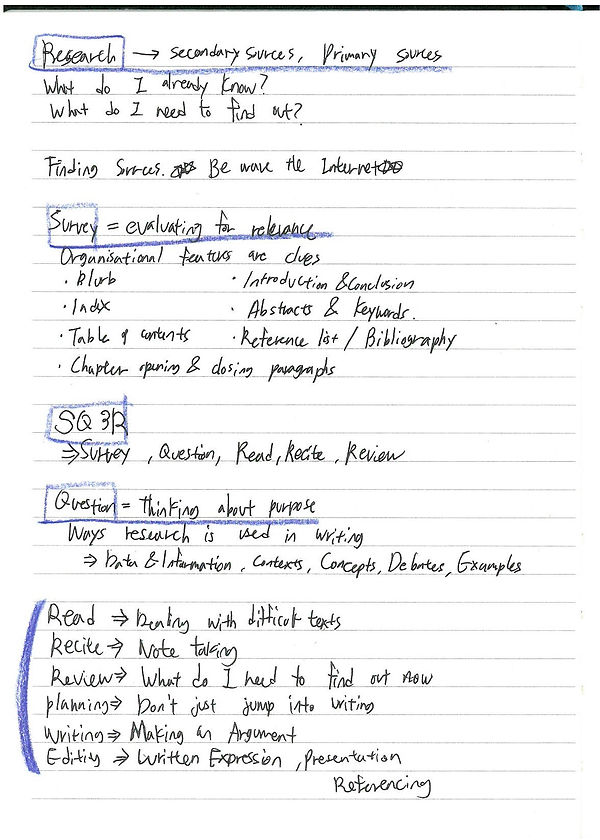 Research → secondary sources, Primary sources
What do I already know?
What do I need to find out?
Finding Sources. Be ware the Internet
Survey = evaluating for relevance
Organisational features are clues
· Blurb · Introduction & Conclusion
· Index · Abstracts & Keywords.
· Table of contents · Reference list / Bibliography
· Chapter opening & closing paragraphs
SQ 3R
⇒ Survey, Question, Read, Recite, Review
Question = Thinking about purpose
Ways research is used in writing
⇒ Data & Information, Contexts, Concepts, Debates, Examples
Read ⇒ Dealing with difficult texts
Recite ⇒ Note taking
Review ⇒ What do I need to find out now
planning ⇒ Don't just jump into writing
Writing ⇒ Making an Argument
Editing ⇒ Written Expression, Presentation
Referencing